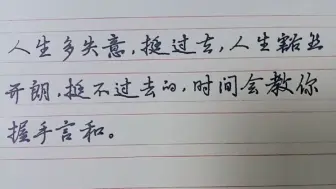 人生多失意，挺过去，人生豁然
开朗，挺不过去的，时间会教你
握手言和。